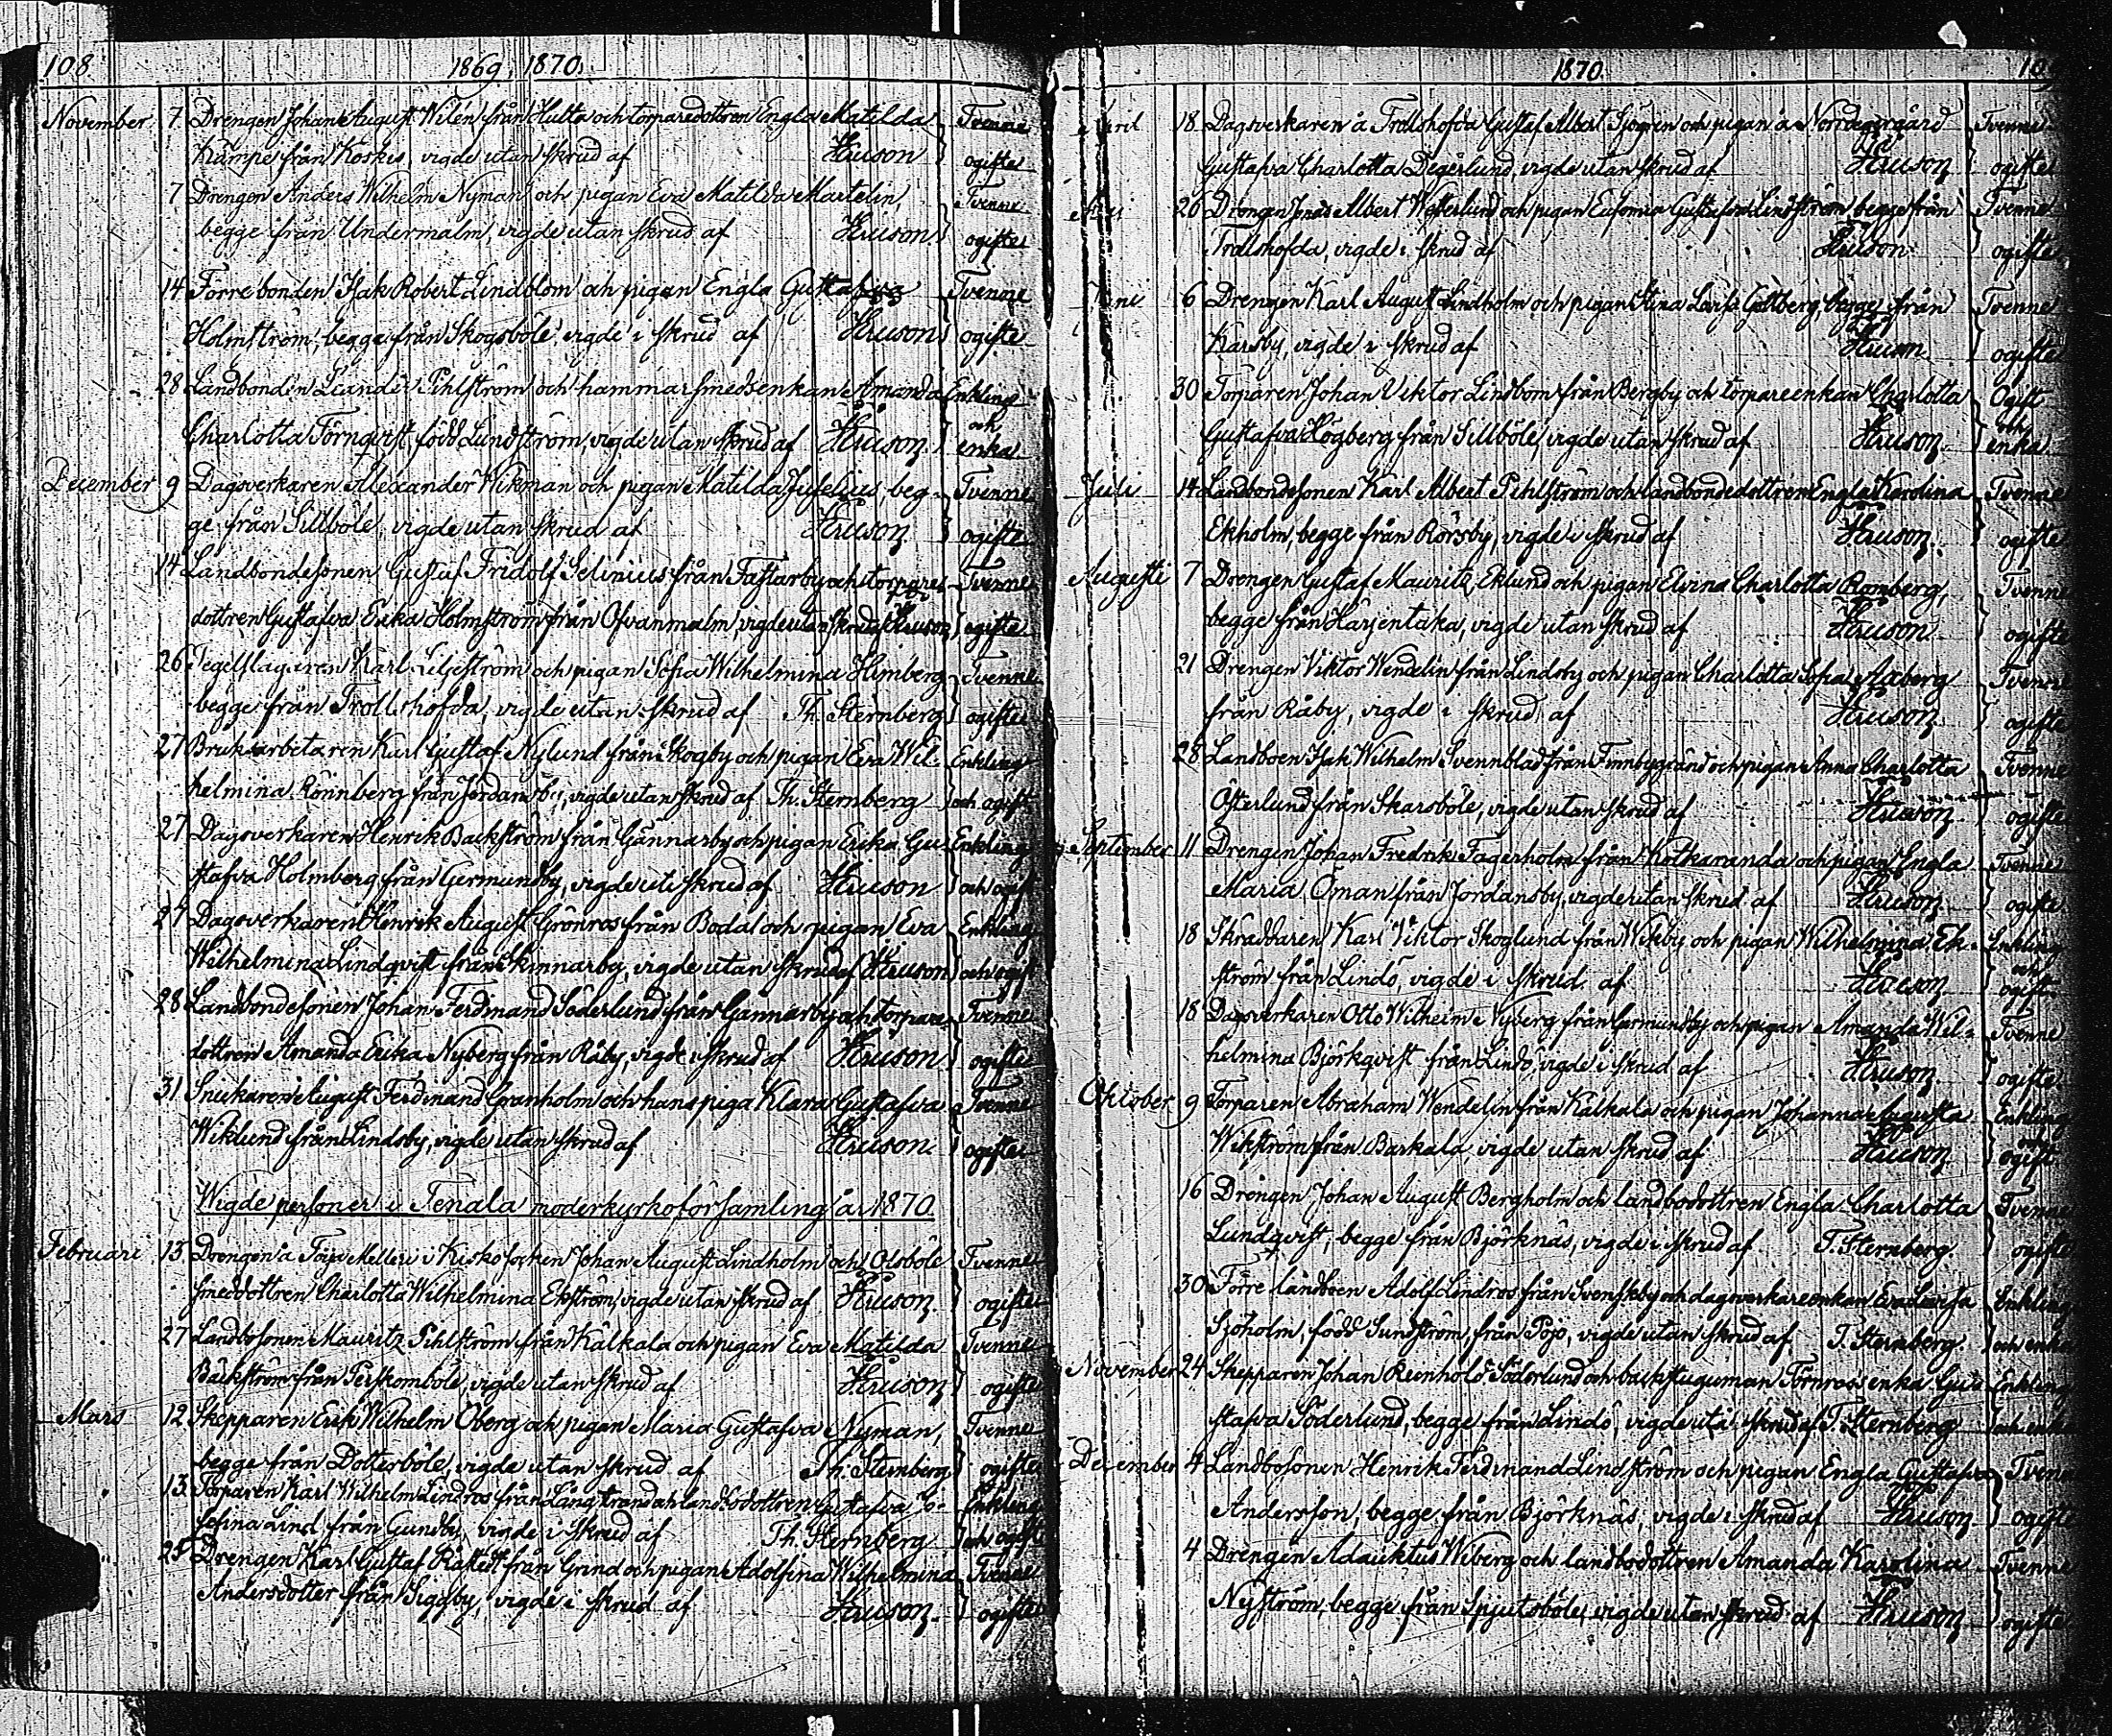 108
1869, 1870.
November 7 Drengen Johan August Wilén från Hulta och torparedottren Engla Matilda Tvenne
Kämpe från Koskis, vigde utan skrud af Heuson ogifte
7 Drengen Anders Wilhelm Nyman och pigan Eva Matilda Martelin Tvenne
begge från Undermalm, vigde utan skrud af Heuson ogifte
14 Förre bonden Isak Robert Lindblom och pigan Engla Gustafva Tvenne
Holmström, begge från Skogsböle, vigde i skrud af Heuson ogifte
28 Landbonden Leander Pihlström och hammarsmedsenkan Amanda Enkling
och
Charlotta Törnqvist, född Lundström, vigde utan skrud af Heuson enka
December 9 Dagsverkaren Alexander Wikman och pigan Matilda Juselius beg- Tvenne
ge från Sillböle, vigde utan skrud af Heuson ogifte
14 Landbondesonen Gustaf Fridolf Selinius från Fastarby och torpare- Tvenne
dottren Gustafva Erika Holmström från Ofvanmalm, vigde utan skrud af Heuson ogifte
26 Tegelslagaren Karl Liljeström och pigan Sofia Wilhelmina Himberg Tvenne
begge från Trollshofda, vigde utan skrud af Th. Sternberg ogifte
27 Bruksarbetaren Karl Gustaf Nylund från Skogby och pigan Eva Wil- Enkling
helmina Rönnberg från Jordansby, vigde utan skrud af Th. Sternberg och ogift
27 Dagsverkaren Henrik Backström från Gännarby och pigan Erika Gu- Enkling
stafva Holmberg från Germundby, vigde uti skrud af Heuson och ogift
27 Dagsverkaren Henrik August Grönros från Bodal och pigan Eva Enkling
Wilhelmina Lindqvist från Skinnarby, vigde utan skrud af Heuson och ogift
28 Landbondesonen Johan Ferdinand Söderlund från Gännarby och torpare- Tvenne
dottren Amanda Erika Nyberg från Råby, vigde i skrud af Heuson ogifte
31 Snickaren August Ferdinand Granholm och hans piga Klara Gustafva Tvenne
Wiklund från Lindsby, vigde utan skrud af Heuson ogifte
Wigde personer i Tenala moderkyrkoförsamling år 1870.
Februari 13 Drengen å Toija Mellere i Kisko socken Johan August Lindholm och Olsböle Tvenne
smeddottren Charlotta Wilhelmina Ekström, vigde utan skrud af Heuson ogifte
27 Landbosonen Mauritz Pihlström från Kålkala och pigan Eva Matilda Tvenne
Bäckström från Perskomböle, vigde utan skrud af Heuson ogifte
Mars 12 Skepparen Erik Wilhelm Öberg och pigan Maria Gustafva Nyman, Tvenne
begge från Dotterböle, vigde utan skrud af Th. Sternberg ogifte
13 Torparen Karl Wilhelm Lindros från Långstrand och landbodottren Gustafva Jo- Enkling
sefina Lind från Gundby, vigde i skrud af Th. Sternberg och ogift
25 Drengen Karl Gustaf från Grind och pigan Adolfina Wilhelmina Tvenne
Andersdotter från Siggby, vigde i skrud af Heuson. ogifte
1870.
April 18 Dagsverkaren å Trollshofda Gustaf Albert Sjögren och pigan å Norrdegergård Tvenne
Gustafva Charlotta Degerlund, vigde utan skrud af Heuson ogifte
Maj 26 Drengen Jonas Albert Westerlund och pigan Eufemia Gustafva Lindström begge från Tvenne
Trollshofda, vigde i skrud af Heuson ogifte
Juni 6 Drengen Karl August Lindholm och pigan Stina Lovisa Gottberg begge från Tvenne
Karsby, vigde i skrud af Heuson ogifte
30 Torparen Johan Viktor Lindbom från Bergby och torpareenkan Charlotta Ogift
och
Gustafva Högberg från Sillböle, vigde utan skrud af Heuson enka
Juli 14 Landbondesonen Karl Albert Pihlström och landbondedottren Engla Karolina Tvenne
Ekholm, begge från Rörsby, vigde i skrud af Heuson ogifte
Augusti 7 Drengen Gustaf Mauritz Eklund och pigan Elvina Charlotta Romberg, Tvenne
begge från Harjentaka, vigde utan skrud af Heuson ogifte
21 Drengen Viktor Wendelin från Lindsby och pigan Charlotta Sofia Aaberg Tvenne
från Råby, vigde i skrud af Heuson ogifte
28 Landboen Isak Wilhelm Svennblad från Finnbygränd och pigan Anna Charlotta Tvenne
Österlund från Skarsböle, vigde utan skrud af Heuson ogifte
September 11 Drengen Johan Fredrik Fagerholm från Kotkaranda och pigan Engla Tvenne
Maria Öman från Jordansby, vigde utan skrud af Heuson ogifte
18 Skräddaren Karl Viktor Skoglund från Wikby och pigan Wilhelmina Ek- Enkling
och
ström från Lindö, vigde i skrud af Heuson ogift
18 Dagsverkaren Otto Wilhelm Nyberg från Germundby och pigan Amanda Wil- Tvenne
helmina Björkqvist från Lindö, vigde i skrud af Heuson ogifte
Oktober 9 Torparen Abraham Wendelin från Kålkala och pigan Johanna Augusta Enkling
och
Wikström från Barkala, vigde utan skrud af Heuson ogift
16 Drengen Johan August Bergholm och landbodottren Engla Charlotta Tvenne
Lundqvist, begge från Björknäs, vigde i skrud af T. Sternberg. ogifte
30 Förre landboen Adolf Lindros från Svenskby och dagsverkareenkan Eva Lovisa Enkling
Sjöholm, född Sundström, från Pojo, vigde utan skrud af T. Sternberg. och enka
November 24 Skepparen Johan Reinhold Söderlund och backstuguman Törnross enka Gu- Enkling
stafva Söderlund, begge från Lindö, vigde uti skrud af T. Sternberg och enka
December 4 Landbosonen Henrik Ferdinand Lindström och pigan Engla Gustafva Tvenne
Andersson, begge från Björknäs, vigde i skrud af Heuson ogifte
4 Drengen Adauktus Wiberg och landbodottren Amanda Karolina Tvenne
Nyström, begge från Spjutsböle, vigde utan skrud af Heuson ogifte